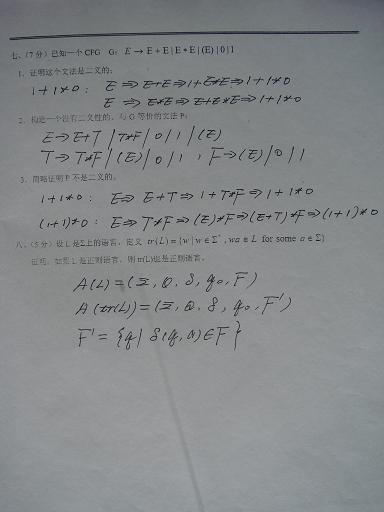 七、(7分) 已知一个 CFG G: E → E + E | E * E | (E) | 0 | 1
1. 证明这个文法是二义的;
1+1*0 : E ⇒ E+E ⇒ 1+E*E ⇒ 1+1*0
E ⇒ E*E ⇒ E+E*E ⇒ 1+1*0
2. 构造一个没有二义性的、与 G 等价的文法 P;
E ⇒ E+T | T*F | 0 | 1 | (E)
T ⇒ T*F | (E) | 0 | 1 , F ⇒ (E) | 0 | 1
3. 简略证明 P 不是二义的。
1+1*0 : E ⇒ E+T ⇒ 1+T*F ⇒ 1+1*0
(1+1)*0 : E ⇒ T*F ⇒ (E)*F ⇒ (E+T)*F ⇒ (1+1)*0
八、(5分) 设 L 是 Σ 上的语言, 定义 tr(L) = {w | w ∈ Σ*, wa ∈ L for some a ∈ Σ}
证明: 如果 L 是正则语言, 则 tr(L)也是正则语言。
A(L) = (Σ, Q, δ, q₀, F)
A(tr(L)) = (Σ, Q, δ, q₀, F')
F' = {q | δ(q, a) ∈ F}